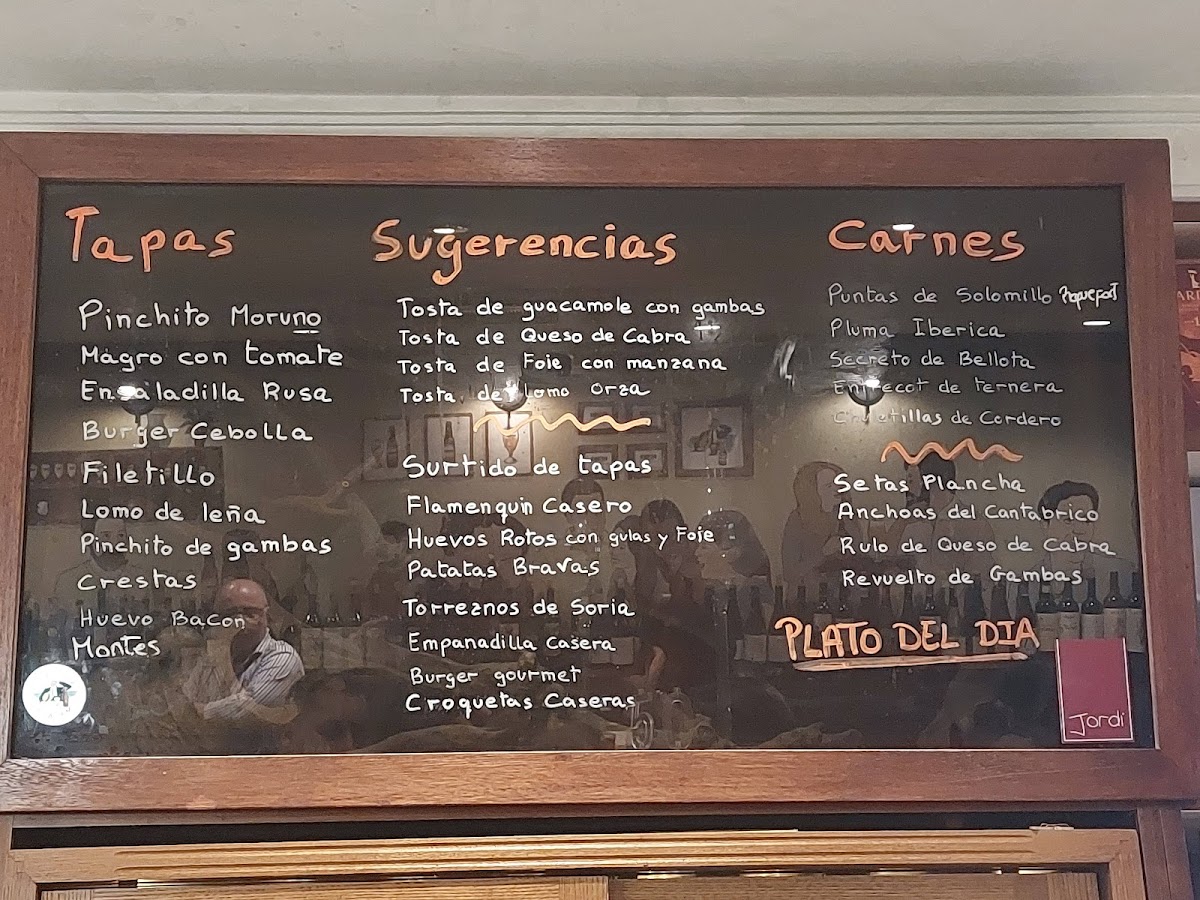 Tapas
Pinchito Moruno
Magro con tomate
Ensaladilla Rusa
Burger Cebolla
Filetillo
Lomo de leña
Pinchito de gambas
Crestas
Huevo Bacon
Montes
Sugerencias
Tosta de guacamole con gambas
Tosta de Queso de Cabra
Tosta de Foie con manzana
Tosta de Lomo Orza
Surtido de tapas
Flamenquin Casero
Huevos Rotos con gulas y Foie
Patatas Bravas
Torreznos de Soria
Empanadilla Casera
Burger gourmet
Croquetas Caseras
Carnes
Puntas de Solomillo
Pluma Iberica
Secreto de Bellota
Entrecot de ternera
Chuletillas de Cordero
Setas Plancha
Anchoas del Cantabrico
Rulo de Queso de Cabra
Revuelto de Gambas
PLATO DEL DIA
Jordi